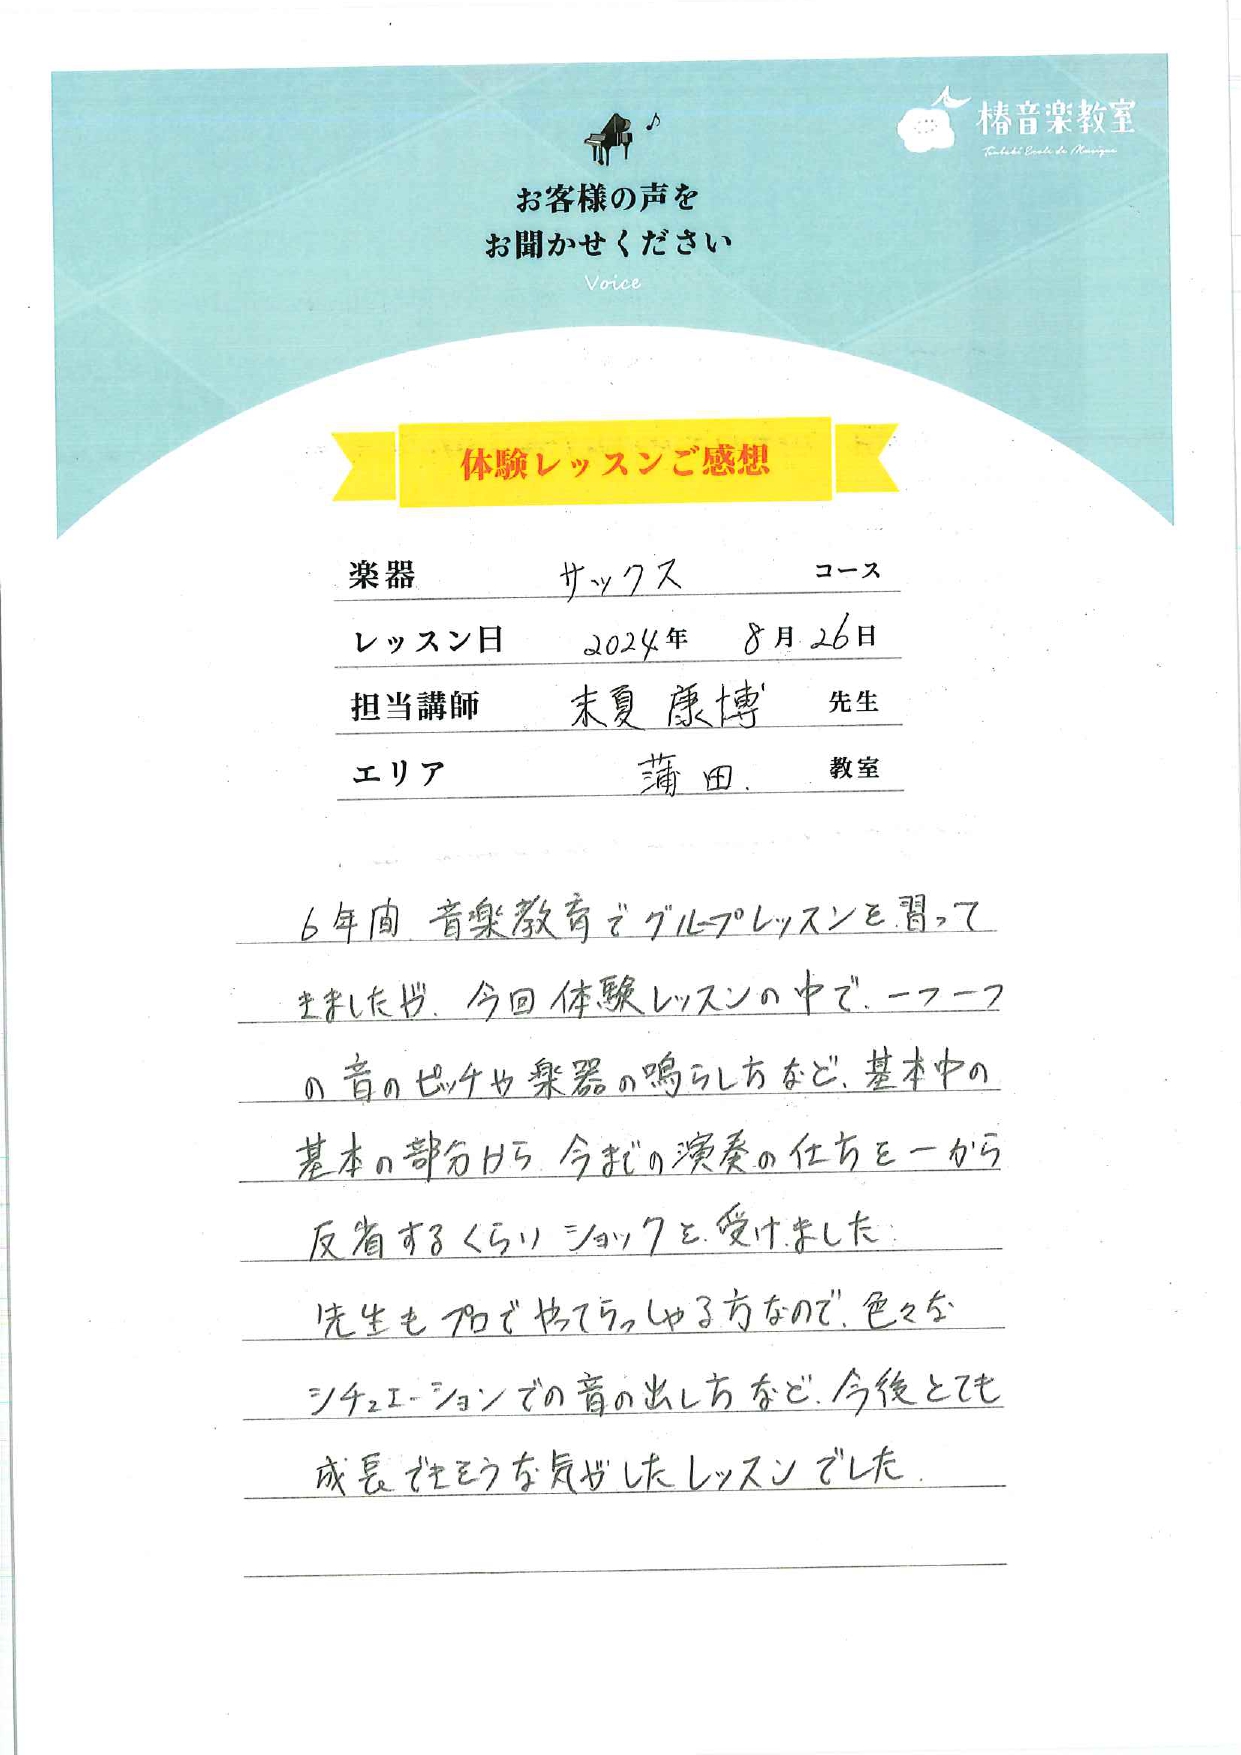 椿音楽教室
Tsubaki Ecole de Musique
お客様の声を
お聞かせください
Voice
体験レッスンご感想
楽器 サックス コース
レッスン日 2024年 8月26日
担当講師 末夏 康博 先生
エリア 蒲田. 教室
6年間 音楽教育でグループレッスンを習って
きましたが、今回体験レッスンの中で、一つ一つ
の音のピッチや楽器の鳴らし方など、基本中の
基本の部分から 今までの演奏の仕方を一から
反省するくらい ショックを受けました。
先生もプロでやってらっしゃる方なので、色々な
シチュエーションでの音の出し方など、今後とても
成長できそうな気がしたレッスンでした。